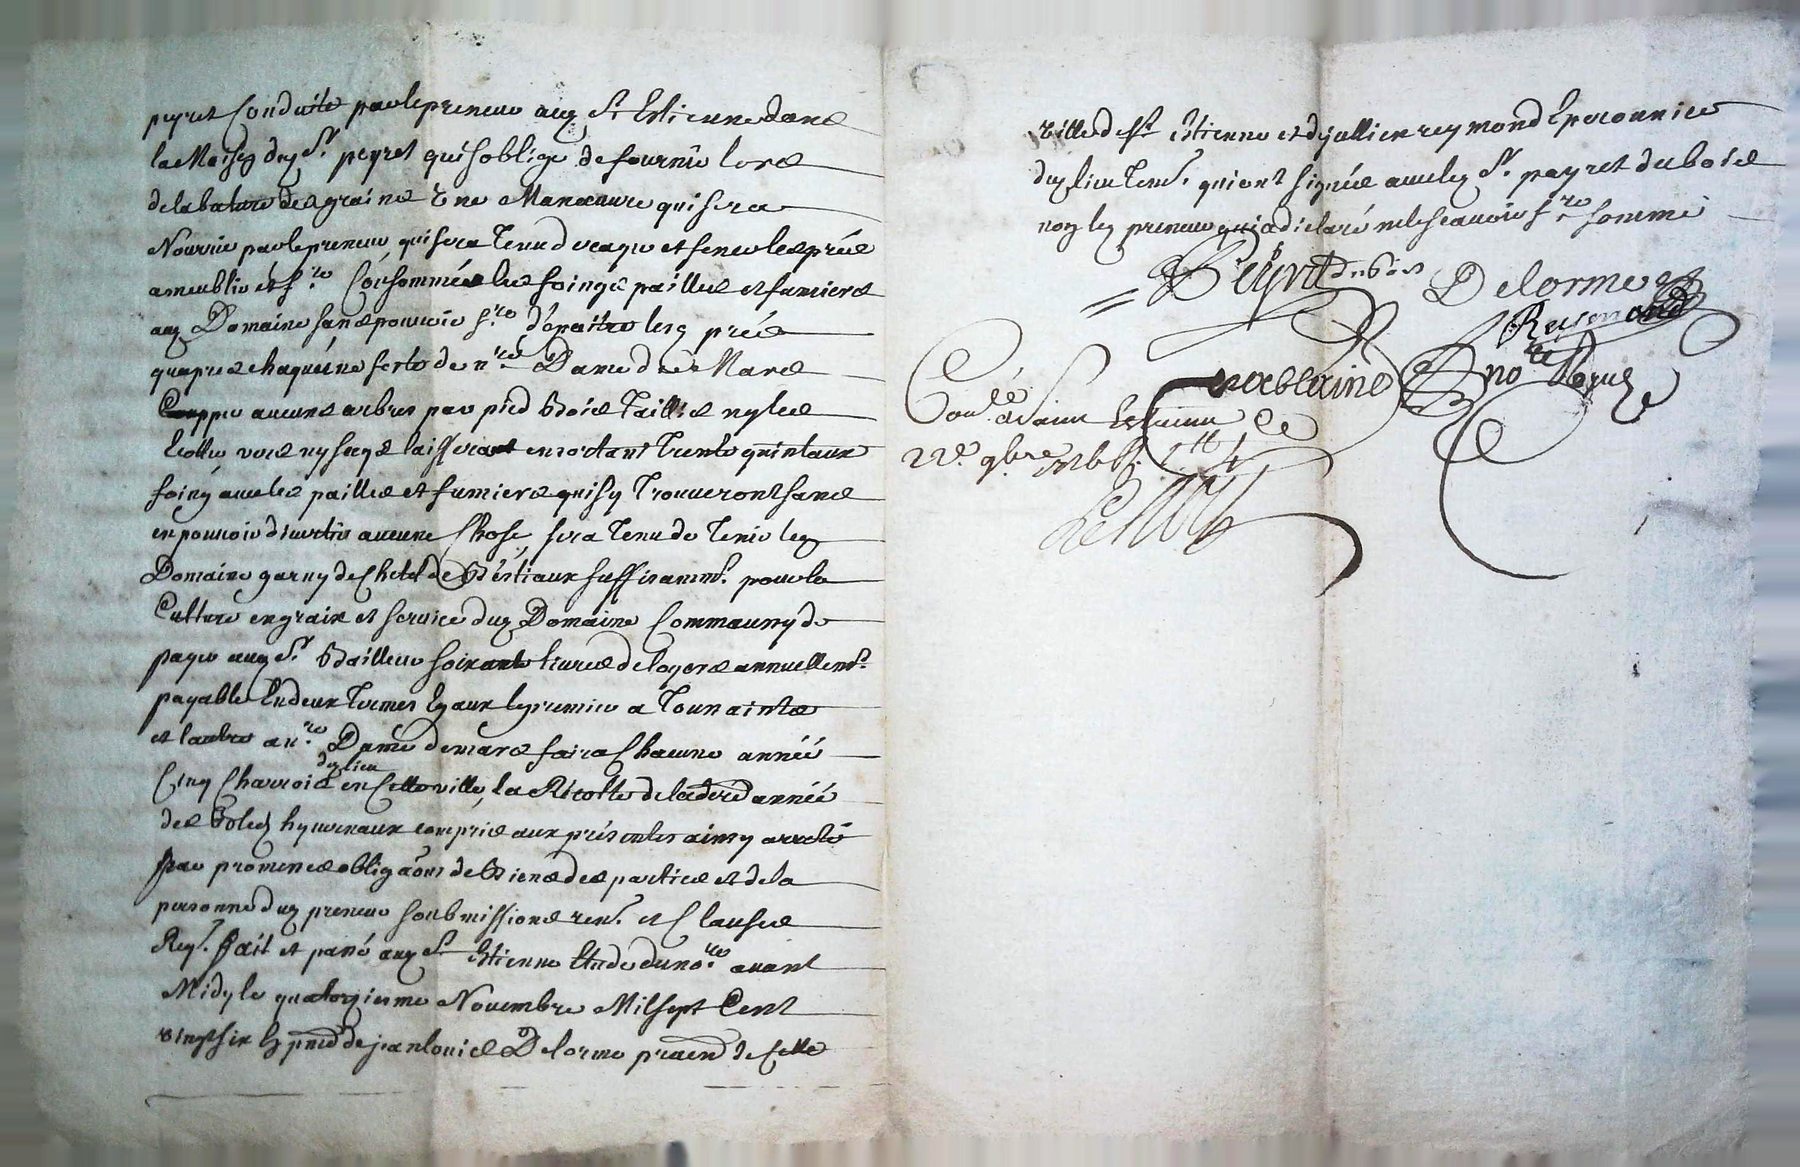 peyret Conduite par le preneur aud St Estienne dans
la Maison dud Sr peyret qui soblige de fournir lors
de la bature des grains Une Manœuvre qui sera
Nourrie par le preneur qui sera Tenu et semer les prés
Consommer les foings pailles et fumiers
aud Domaine sans pouvoir faire dépaitre lesd prés
quapres chaque feste de nre Dame de Mars
Coupper aucuns arbres par pied Bois Taillis ny les
laissera en sortant Trente quintaux
foing avec les pailles et fumiers qui sy Trouveront sans
en pouvoir divertir aucune Chose, sera Tenu de Tenir led
Domaine garny de Bestiaux suffisamt. pour la
Culture engrain et service dud Domaine
payer aud Sr. Bailleur soixante livres de loyers annuellemt.
payable En deux Termes Egaux le premier a Toussaints
et lautre a nre. Dame de mars faira Chacune année
dud lieu
Cinq Charrois en Cette ville, la Recolte de la derd année
des Bleds hyvernaux compris aux présentes ainsy arreté
par promesses obligaons de Biens des parties et de la
personne dud preneur soubmissions ren. et Clauses
Req. fait et passé aud St Estienne Etude du nore. avant
Midy le quatorzieme Novembre Mil sept Cent
vingt six En pnce de jean louis Delorme praticien de cette
ville de St Estienne et de jullien reymond Eperonnier
dud lieu Tems. qui ont signés avec led Sr. peyret dubois
non led preneur qui a declaré ne le scavoir fre sommé
Peyret dubois Delorme
Reymond
nore Royal
Conlé a Saint Estienne Ce
22e. 9bre 1726